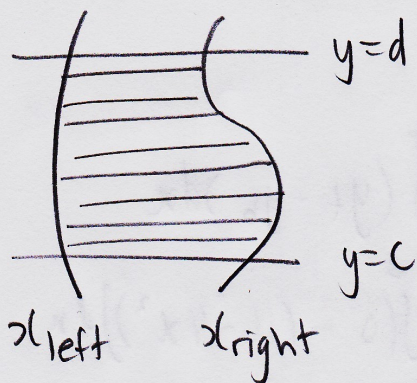 y=d
y=c
x left
x right